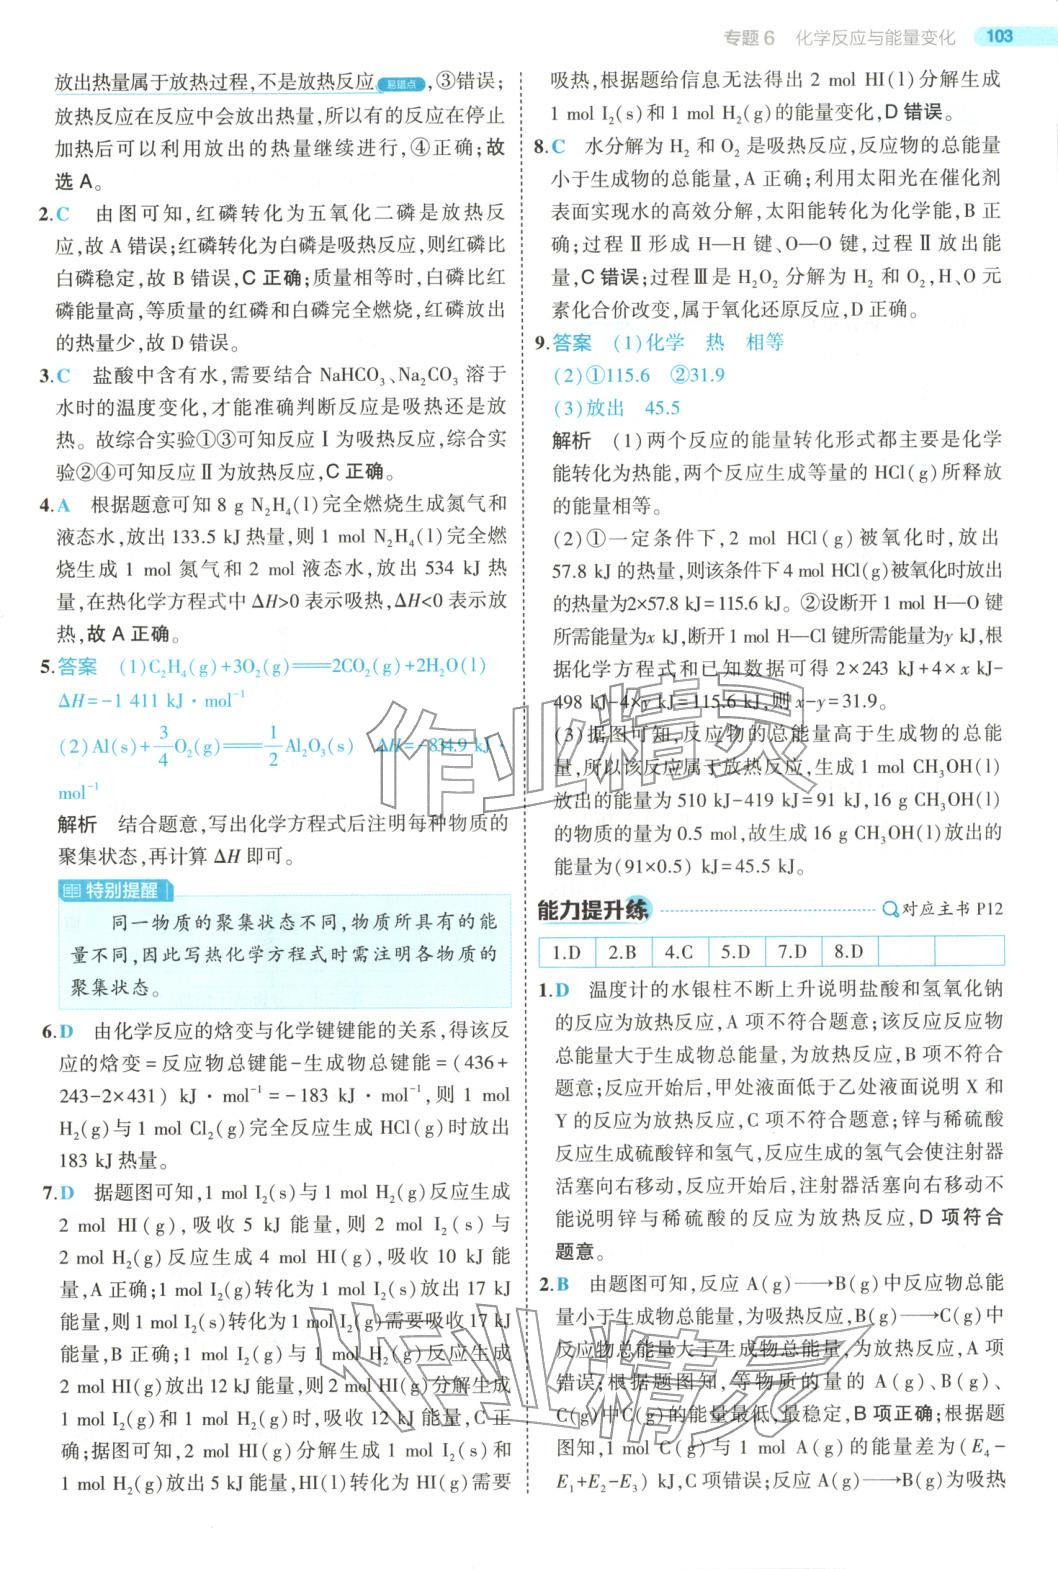 专题6 化学反应与能量变化 103
放出热量属于放热过程,不是放热反应 易错点 ,③错误;
放热反应在反应中会放出热量,所以有的反应在停止
加热后可以利用放出的热量继续进行,④正确;故
选A。
2.C 由图可知,红磷转化为五氧化二磷是放热反
应,故 A 错误;红磷转化为白磷是吸热反应,则红磷比
白磷稳定,故 B 错误,C 正确;质量相等时,白磷比红
磷能量高,等质量的红磷和白磷完全燃烧,红磷放出
的热量少,故 D 错误。
3.C 盐酸中含有水,需要结合 NaHCO₃、Na₂CO₃ 溶于
水时的温度变化,才能准确判断反应是吸热还是放
热。故综合实验①③可知反应Ⅰ为吸热反应,综合实
验②④可知反应Ⅱ为放热反应,C 正确。
4.A 根据题意可知 8 g N₂H₄(l)完全燃烧生成氮气和
液态水,放出 133.5 kJ 热量,则 1 mol N₂H₄(l)完全燃
烧生成 1 mol 氮气和 2 mol 液态水,放出 534 kJ 热
量,在热化学方程式中 ΔH>0 表示吸热,ΔH<0 表示放
热,故 A 正确。
5.答案 (1)C₂H₄(g)+3O₂(g)══2CO₂(g)+2H₂O(l)
ΔH=-1 411 kJ·mol⁻¹
(2)Al(s)+3/4O₂(g)══1/2Al₂O₃(s) ΔH=-834.9 kJ·
mol⁻¹
解析 结合题意,写出化学方程式后注明每种物质的
聚集状态,再计算 ΔH 即可。
特别提醒
同一物质的聚集状态不同,物质所具有的能
量不同,因此写热化学方程式时需注明各物质的
聚集状态。
6.D 由化学反应的焓变与化学键键能的关系,得该反
应的焓变=反应物总键能-生成物总键能=(436+
243-2×431) kJ·mol⁻¹=-183 kJ·mol⁻¹,则 1 mol
H₂(g)与 1 mol Cl₂(g)完全反应生成 HCl(g)时放出
183 kJ 热量。
7.D 据题图可知,1 mol I₂(s)与 1 mol H₂(g)反应生成
2 mol HI(g),吸收 5 kJ 能量,则 2 mol I₂(s)与
2 mol H₂(g)反应生成 4 mol HI(g),吸收 10 kJ 能
量,A 正确;1 mol I₂(g)转化为 1 mol I₂(s)放出 17 kJ
能量,则 1 mol I₂(s)转化为 1 mol I₂(g)需要吸收 17 kJ
能量,B 正确;1 mol I₂(g)与 1 mol H₂(g)反应生成
2 mol HI(g)放出 12 kJ 能量,则 2 mol HI(g)分解生成
1 mol I₂(g)和 1 mol H₂(g)时,吸收 12 kJ 能量,C 正
确;据图可知,2 mol HI(g)分解生成 1 mol I₂(s)和
1 mol H₂(g)放出 5 kJ 能量,HI(l)转化为 HI(g)需要
吸热,根据题给信息无法得出 2 mol HI(l)分解生成
1 mol I₂(s)和 1 mol H₂(g)的能量变化,D 错误。
8.C 水分解为 H₂ 和 O₂ 是吸热反应,反应物的总能量
小于生成物的总能量,A 正确;利用太阳光在催化剂
表面实现水的高效分解,太阳能转化为化学能,B 正
确;过程Ⅱ形成 H—H 键、O—O 键,过程Ⅱ放出能
量,C 错误;过程Ⅲ是 H₂O₂ 分解为 H₂ 和 O₂,H、O 元
素化合价改变,属于氧化还原反应,D 正确。
9.答案 (1)化学 热 相等
(2)①115.6 ②31.9
(3)放出 45.5
解析 (1)两个反应的能量转化形式都主要是化学
能转化为热能,两个反应生成等量的 HCl(g)所释放
的能量相等。
(2)①一定条件下,2 mol HCl(g)被氧化时,放出
57.8 kJ 的热量,则该条件下 4 mol HCl(g)被氧化时放出
的热量为2×57.8 kJ=115.6 kJ。②设断开 1 mol H—O 键
所需能量为x kJ,断开 1 mol H—Cl 键所需能量为y kJ,根
据化学方程式和已知数据可得 2×243 kJ+4×x kJ-
498 kJ-4×y kJ=115.6 kJ,则 x-y=31.9。
(3)据图可知,反应物的总能量高于生成物的总能
量,所以该反应属于放热反应,生成 1 mol CH₃OH(l)
放出的能量为 510 kJ-419 kJ=91 kJ,16 g CH₃OH(l)
的物质的量为 0.5 mol,故生成 16 g CH₃OH(l)放出的
能量为(91×0.5) kJ=45.5 kJ。
能力提升练 对应主书 P12
1.D 2.B 4.C 5.D 7.D 8.D
1.D 温度计的水银柱不断上升说明盐酸和氢氧化钠
的反应为放热反应,A 项不符合题意;该反应反应物
总能量大于生成物总能量,为放热反应,B 项不符合
题意;反应开始后,甲处液面低于乙处液面说明 X 和
Y 的反应为放热反应,C 项不符合题意;锌与稀硫酸
反应生成硫酸锌和氢气,反应生成的氢气会使注射器
活塞向右移动,反应开始后,注射器活塞向右移动不
能说明锌与稀硫酸的反应为放热反应,D 项符合
题意。
2.B 由题图可知,反应 A(g)⟶B(g)中反应物总能
量小于生成物总能量,为吸热反应,B(g)⟶C(g)中
反应物总能量大于生成物总能量,为放热反应,A 项
错误;根据题图可知,等物质的量的 A(g)、B(g)、
C(g)中 C(g)的能量最低,最稳定,B 项正确;根据题
图知,1 mol C(g)与 1 mol A(g)的能量差为(E₄-
E₁+E₂-E₃) kJ,C 项错误;反应 A(g)⟶B(g)为吸热
作业精灵
作业精灵